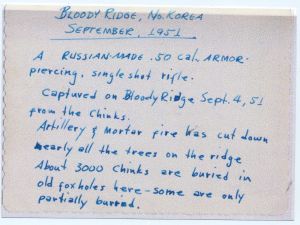 BLOODY RIDGE, NO. KOREA
SEPTEMBER, 1951
A RUSSIAN-MADE .50 CAL. ARMOR-
piercing, single shot rifle.
Captured on Bloody Ridge Sept. 4, 51
from the Chinks.
Artillery & Mortar fire has cut down
nearly all the trees on the ridge
About 3000 Chinks are buried in
old foxholes here - some are only
partially burred.